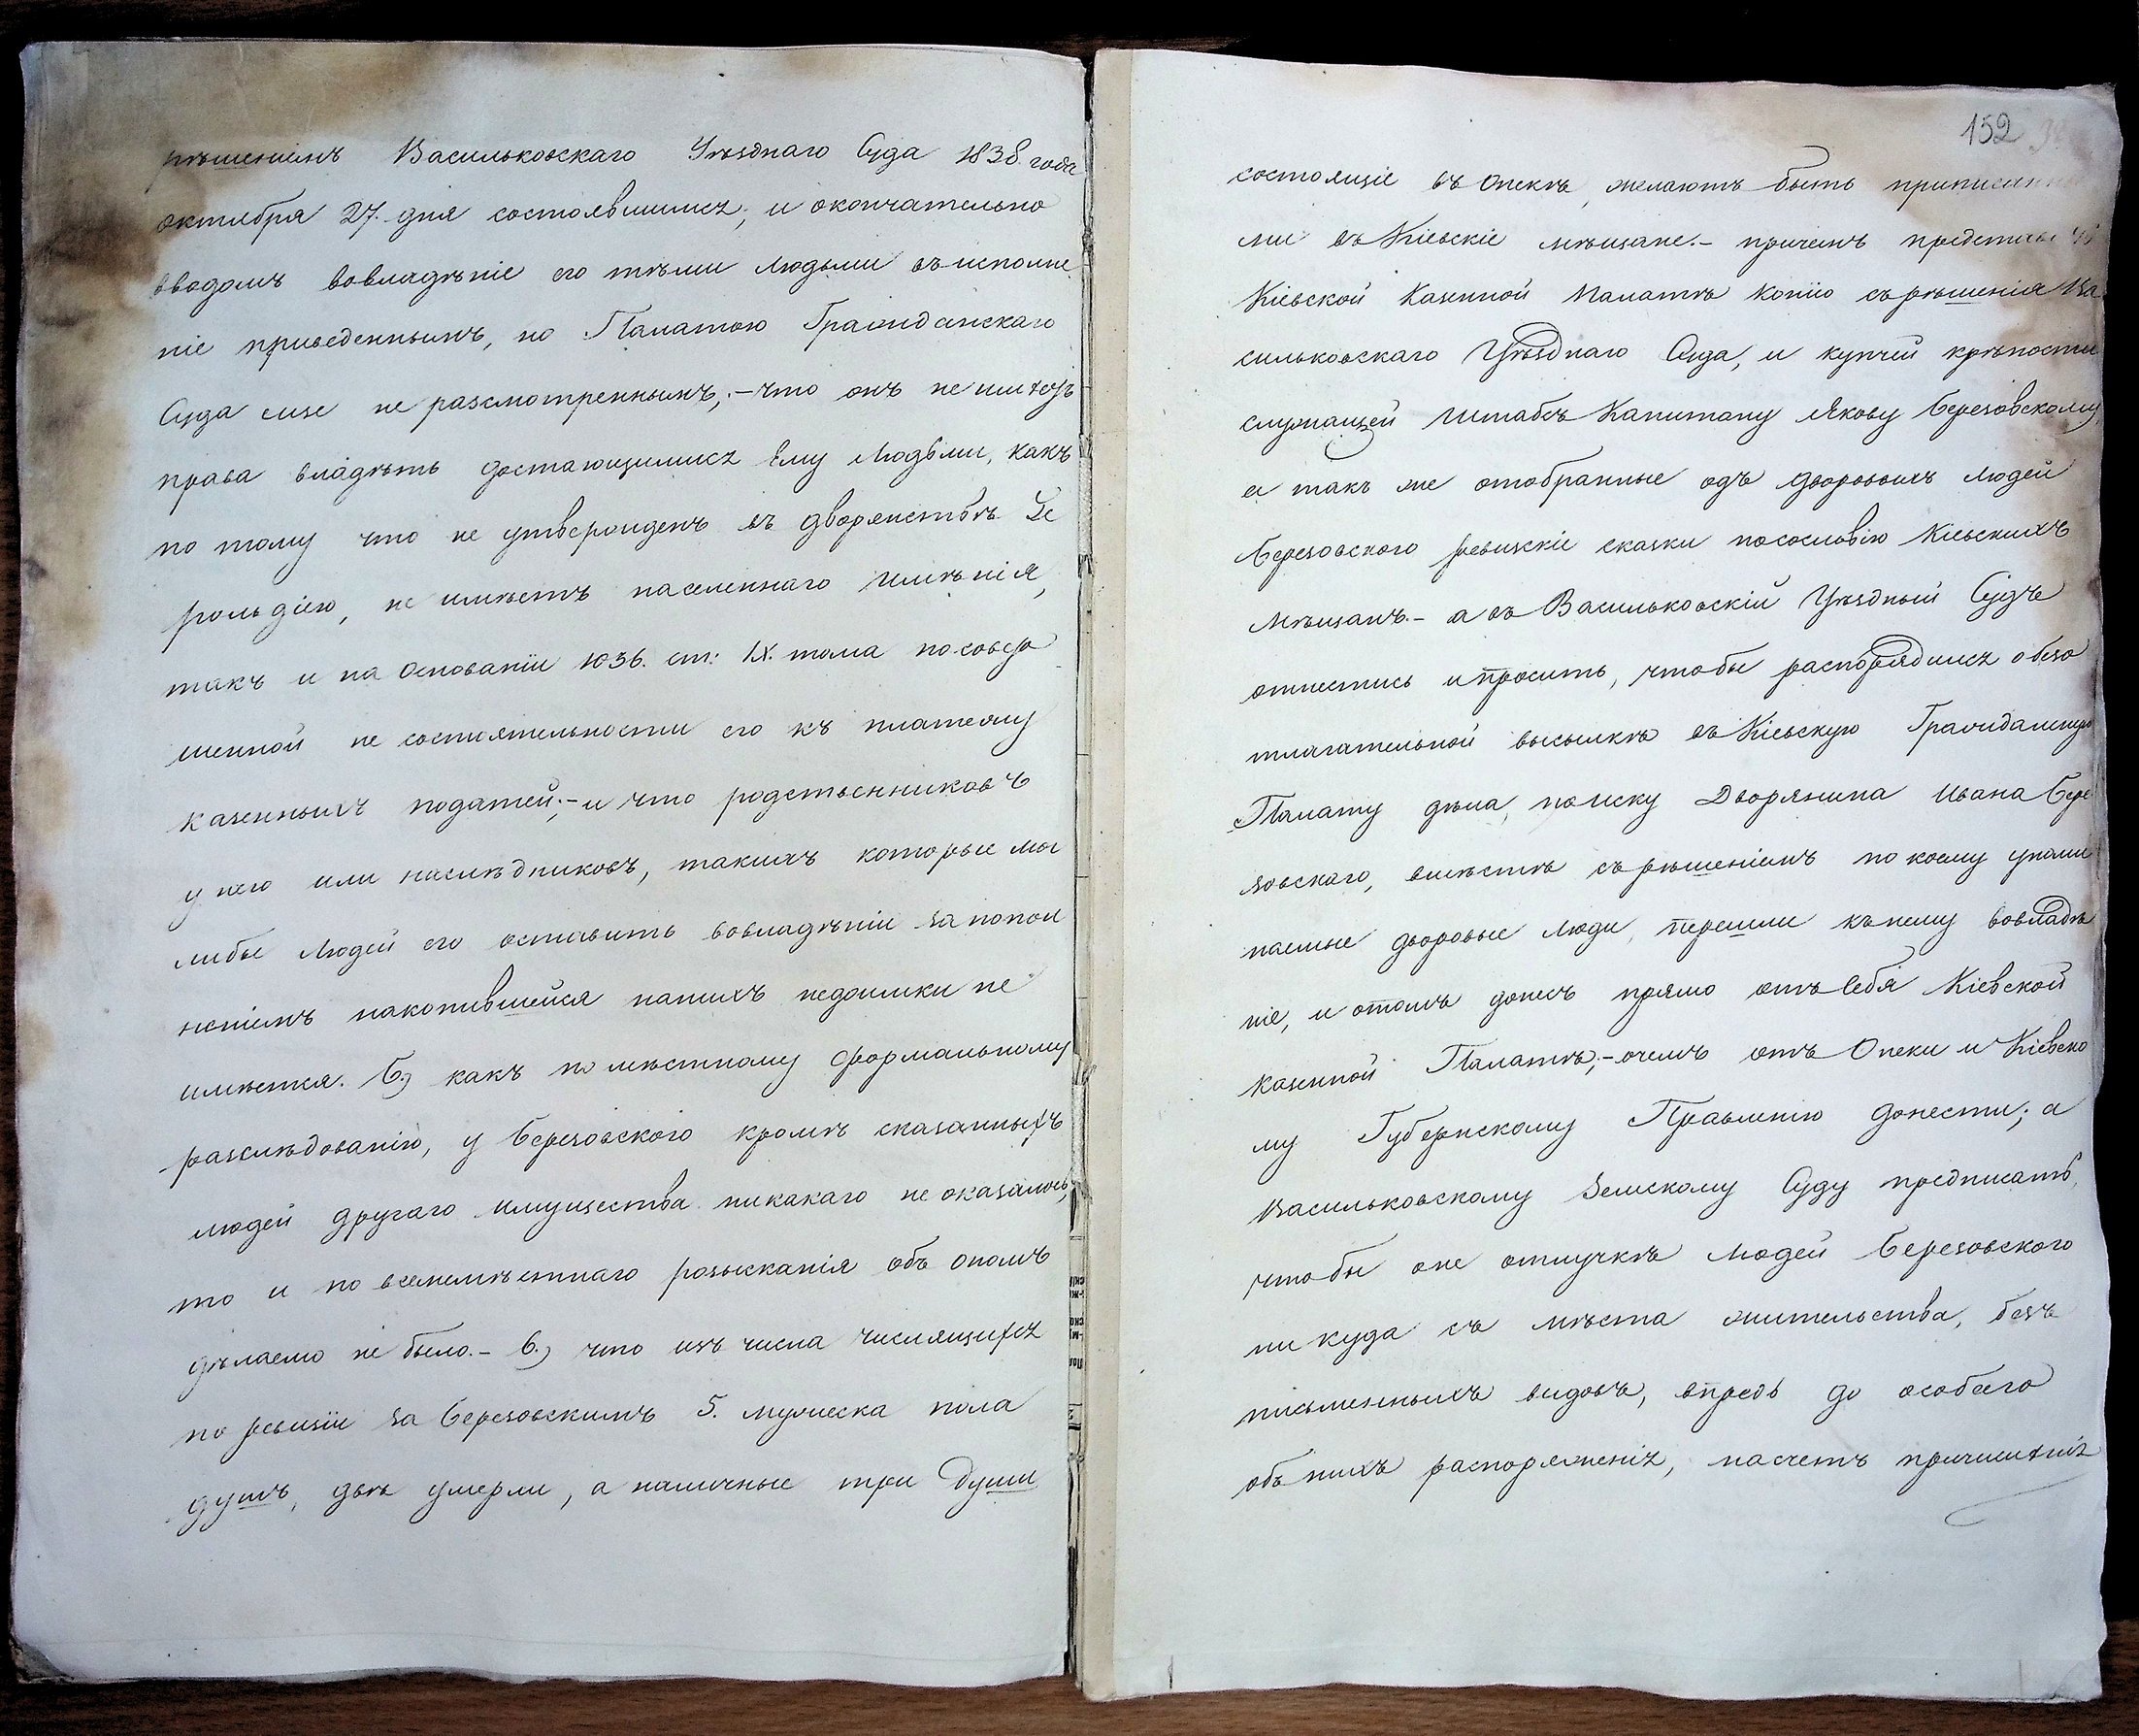 рѣшеніемъ Васильковскаго Уѣзднаго Суда 1838 года
октября 27. дня состоявшимся, и окончательно
вводомъ вовладѣніе его тѣми людьми въ исполне
ніе приведеннымъ, но Палатою Гражданскаго
Суда еще не разсмотреннымъ,- что онъ не имѣетъ
права владѣть достающимися Ему людьми, какъ
по тому что не утвержденъ въ дворянствѣ Ге
рольдіею, не имѣетъ населеннаго имѣнія,
такъ и на основаніи 1036. ст: IX. тома по совер
шенной не состоятельности его къ платежу
казенныхъ податей;- и что родственниковъ
у него или наслѣдниковъ, такихъ которые мог
либы людей его оставить вовладѣніи за попол
неніемъ накопившейся на нихъ недоимки не
имѣется. Б) какъ по мѣстному формальному
разслѣдованію, у Березовского кромѣ сказанныхъ
людей другаго имущества никакаго не оказалось,
то и по всеместнаго розысканія объ ономъ
дѣлаемо не было.- В) что изъ числа числящихся
по ревизіи за Березовскимъ 5. мужеска пола
душъ, двѣ умерли, а наличные три души
152
состоящіе въ Опекѣ, желаютъ быть приписанны
ми въ Кіевскіе мѣщане.- причемъ представя
Кіевской Казенной Палатѣ копію съ рѣшенія Ва
сильковскаго Уѣзднаго Суда, и купчей крѣпости
служащей Штабсъ Капитану Якову Березовскому,
а такъ же отобранные одъ дворовыхъ людей
Березовского ревизскіе сказки посословію Кіевскихъ
мѣщанъ.- а въ Васильковскій Уѣздный Судъ
отнестись и просить, чтобы распорядился о безо
тлагательной высылкѣ въ Кіевскую Гражданскую
Палату дѣла, по иску Дворянина Ивана Бере
зовскаго, вмѣстѣ съ рѣшеніемъ по коему упоми
наемые дворовые люди, перешли къ нему вовладѣ
ніе, и отомъ донесъ прямо отъ себя Кіевской
Казенной Палатѣ;- очемъ отъ Опеки и Кіевско
му Губернскому Правленію донести; а
Васильковскому Земскому Суду предписать,
чтобы оне отлучкѣ людей Березовского
ни куда съ мѣста жительства, безъ
письменныхъ видовъ, впредь до особаго
объ нихъ распоряженія, насчетъ причисленія